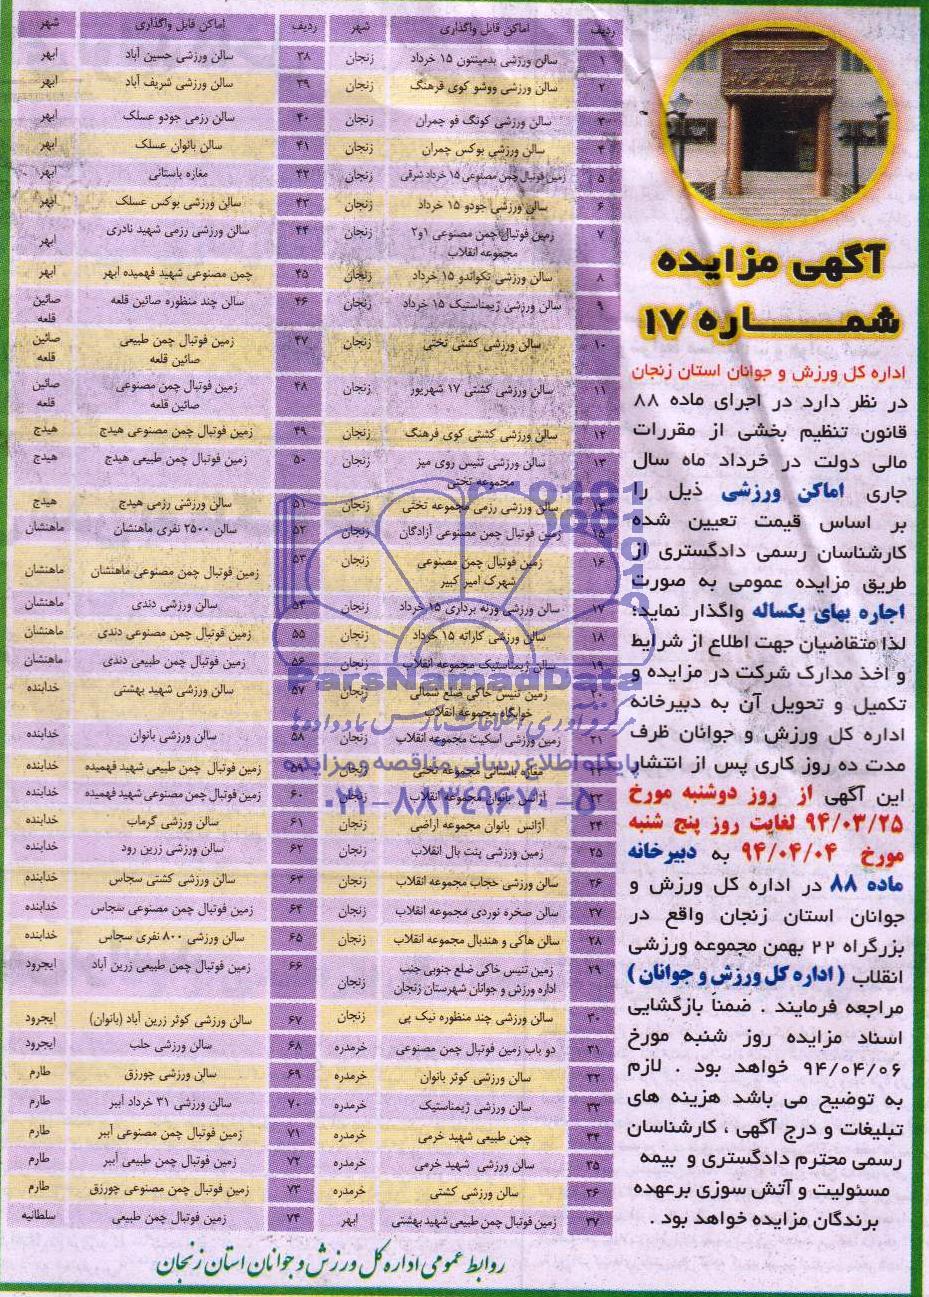 آگهی مزایده
شمـــــاره ۱۷
اداره کل ورزش و جوانان استان زنجان
در نظر دارد در اجرای ماده ۸۸
قانون تنظیم بخشی از مقررات
مالی دولت در خرداد ماه سال
جاری اماکن ورزشی ذیل را
بر اساس قیمت تعیین شده
کارشناسان رسمی دادگستری از
طریق مزایده عمومی به صورت
اجاره بهای یکساله واگذار نماید؛
لذا متقاضیان جهت اطلاع از شرایط
و اخذ مدارک شرکت در مزایده و
تکمیل و تحویل آن به دبیرخانه
اداره کل ورزش و جوانان ظرف
مدت ده روز کاری پس از انتشار
این آگهی از روز دوشنبه مورخ
۹۴/۰۳/۲۵ لغایت روز پنج شنبه
مورخ ۹۴/۰۴/۰۴ به دبیرخانه
ماده ۸۸ در اداره کل ورزش و
جوانان استان زنجان واقع در
بزرگراه ۲۲ بهمن مجموعه ورزشی
انقلاب (اداره کل ورزش و جوانان)
مراجعه فرمایند . ضمناً بازگشایی
اسناد مزایده روز شنبه مورخ
۹۴/۰۴/۰۶ خواهد بود . لازم
به توضیح می باشد هزینه های
تبلیغات و درج آگهی ، کارشناسان
رسمی محترم دادگستری و بیمه
مسئولیت و آتش سوزی برعهده
برندگان مزایده خواهد بود .
ردیف اماکن قابل واگذاری شهر
۱ سالن ورزشی بدمینتون ۱۵ خرداد زنجان
۲ سالن ورزشی ووشو کوی فرهنگ زنجان
۳ سالن ورزشی کونگ فو چمران زنجان
۴ سالن ورزشی بوکس چمران زنجان
۵ زمین فوتبال چمن مصنوعی ۱۵ خرداد شرقی زنجان
۶ سالن ورزشی جودو ۱۵ خرداد زنجان
۷ زمین فوتبال چمن مصنوعی ۱و۲ زنجان
مجموعه انقلاب
۸ سالن ورزشی تکواندو ۱۵ خرداد زنجان
۹ سالن ورزشی ژیمناستیک ۱۵ خرداد زنجان
۱۰ سالن ورزشی کشتی تختی زنجان
۱۱ سالن ورزشی کشتی ۱۷ شهریور زنجان
۱۲ سالن ورزشی کشتی کوی فرهنگ زنجان
۱۳ سالن ورزشی تنیس روی میز زنجان
مجموعه تختی
۱۴ سالن ورزشی رزمی مجموعه تختی زنجان
۱۵ زمین فوتبال چمن مصنوعی آزادگان زنجان
۱۶ زمین فوتبال چمن مصنوعی زنجان
شهرک امیر کبیر
۱۷ سالن ورزشی وزنه برداری ۱۵ خرداد زنجان
۱۸ سالن ورزشی کاراته ۱۵ خرداد زنجان
۱۹ سالن ژیمناستیک مجموعه انقلاب زنجان
۲۰ زمین تنیس خاکی ضلع شمالی زنجان
خوابگاه مجموعه انقلاب
۲۱ زمین ورزشی اسکیت مجموعه انقلاب زنجان
۲۲ مغازه باستانی مجموعه تختی زنجان
۲۳ آژانس بانوان مجموعه انقلاب زنجان
۲۴ آژانس بانوان مجموعه اراضی زنجان
۲۵ زمین ورزشی پنت بال انقلاب زنجان
۲۶ سالن ورزشی حجاب مجموعه انقلاب زنجان
۲۷ سالن صخره نوردی مجموعه انقلاب زنجان
۲۸ سالن هاکی و هندبال مجموعه انقلاب زنجان
۲۹ زمین تنیس خاکی ضلع جنوبی جنب زنجان
اداره ورزش و جوانان شهرستان زنجان
۳۰ سالن ورزشی چند منظوره نیک پی زنجان
۳۱ دو باب زمین فوتبال چمن مصنوعی خرمدره
۳۲ سالن ورزشی کوثر بانوان خرمدره
۳۳ سالن ورزشی ژیمناستیک خرمدره
۳۴ چمن طبیعی شهید خرمی خرمدره
۳۵ سالن ورزشی شهید خرمی خرمدره
۳۶ سالن ورزشی کشتی خرمدره
۳۷ زمین فوتبال چمن طبیعی شهید بهشتی ابهر
ردیف اماکن قابل واگذاری شهر
۳۸ سالن ورزشی حسین آباد ابهر
۳۹ سالن ورزشی شریف آباد ابهر
۴۰ سالن رزمی جودو عسلک ابهر
۴۱ سالن بانوان عسلک ابهر
۴۲ مغازه باستانی ابهر
۴۳ سالن ورزشی بوکس عسلک ابهر
۴۴ سالن ورزشی رزمی شهید نادری ابهر
۴۵ چمن مصنوعی شهید فهمیده ابهر ابهر
۴۶ سالن چند منظوره صائین قلعه صائین قلعه
۴۷ زمین فوتبال چمن طبیعی صائین
صائین قلعه قلعه
۴۸ زمین فوتبال چمن مصنوعی صائین
صائین قلعه قلعه
۴۹ زمین فوتبال چمن مصنوعی هیدج هیدج
۵۰ زمین فوتبال چمن طبیعی هیدج هیدج
۵۱ سالن ورزشی رزمی هیدج هیدج
۵۲ سالن ۲۵۰۰ نفری ماهنشان ماهنشان
۵۳ زمین فوتبال چمن مصنوعی ماهنشان ماهنشان
۵۴ سالن ورزشی دندی ماهنشان
۵۵ زمین فوتبال چمن مصنوعی دندی ماهنشان
۵۶ زمین فوتبال چمن طبیعی دندی ماهنشان
۵۷ سالن ورزشی شهید بهشتی خدابنده
۵۸ سالن ورزشی بانوان خدابنده
۵۹ زمین فوتبال چمن طبیعی شهید فهمیده خدابنده
۶۰ زمین فوتبال چمن مصنوعی شهید فهمیده خدابنده
۶۱ سالن ورزشی گرماب خدابنده
۶۲ سالن ورزشی زرین رود خدابنده
۶۳ سالن ورزشی کشتی سجاس خدابنده
۶۴ زمین فوتبال چمن مصنوعی سجاس خدابنده
۶۵ سالن ورزشی ۸۰۰ نفری سجاس خدابنده
۶۶ زمین فوتبال چمن طبیعی زرین آباد ایجرود
۶۷ سالن ورزشی کوثر زرین آباد (بانوان) ایجرود
۶۸ سالن ورزشی حلب ایجرود
۶۹ سالن ورزشی چورزق طارم
۷۰ سالن ورزشی ۳۱ خرداد آببر طارم
۷۱ زمین فوتبال چمن مصنوعی آببر طارم
۷۲ زمین فوتبال چمن طبیعی آببر طارم
۷۳ زمین فوتبال چمن مصنوعی چورزق طارم
۷۴ زمین فوتبال چمن طبیعی سلطانیه
ParsNamadData
مرکز فرآوری اطلاعات پارس نماد داده ها
پایگاه اطلاع رسانی مناقصه و مزایده
۰۲۱-۸۸۳۴۹۶۷۰-۵
روابط عمومی اداره کل ورزش و جوانان استان زنجان